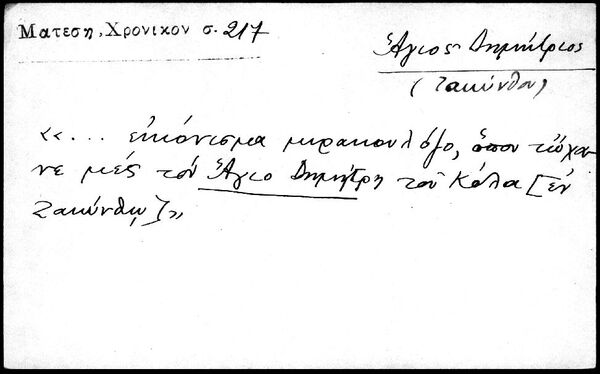 Ματεση, Χρονικον σ. 217
Ἅγιος Δημήτριος
(Ζακύνθου)
«... εἰκόνισμα μιρακουλόζο, ὅπου τὦχα-
νε μές τόν Ἅγιο Δημήτρη τοῦ Κόλα [ἐν
Ζακύνθῳ]»